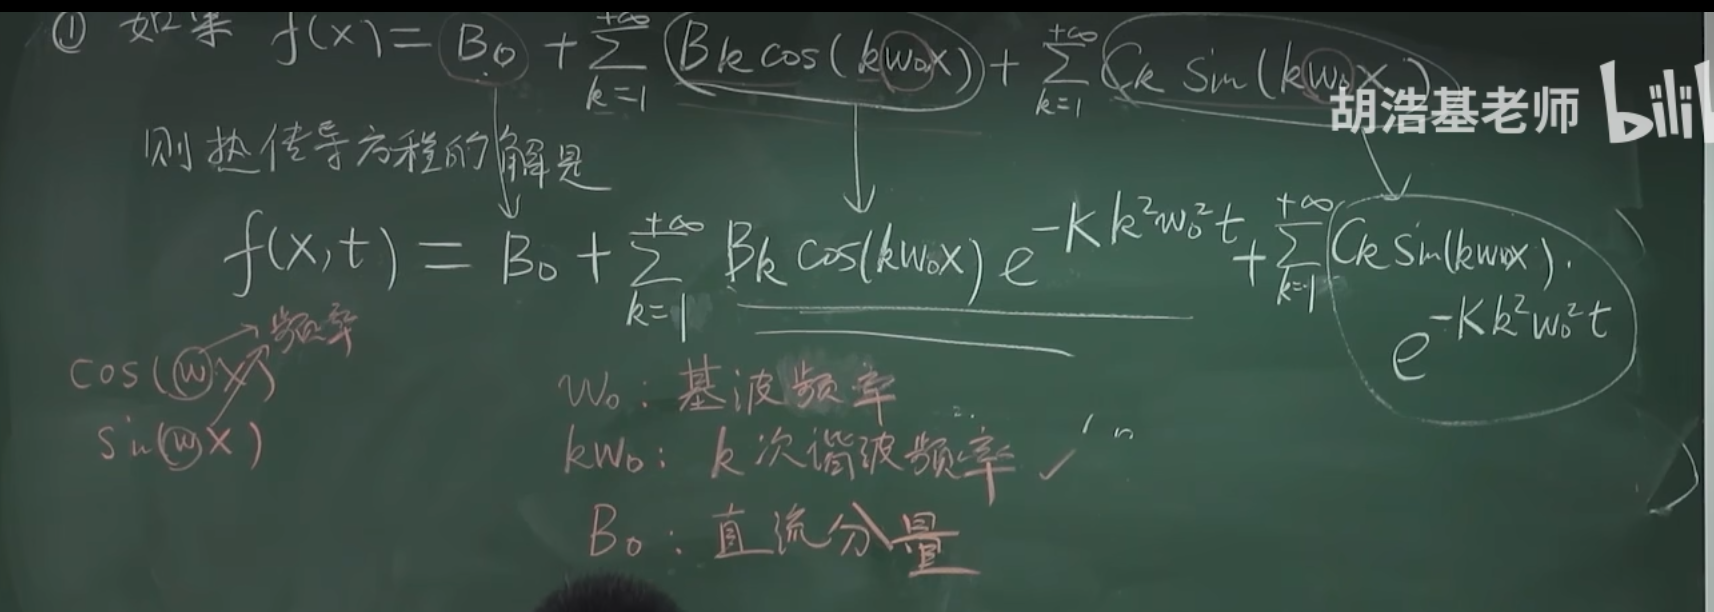 ① 如果 f(x) = B₀ + ∑_{k=1}^{+∞} Bk cos(kw₀x) + ∑_{k=1}^{+∞} Ck Sin(kw₀x)
胡浩基老师 bili
则热传导方程的解是
f(x,t) = B₀ + ∑_{k=1}^{+∞} Bk cos(kw₀x) e^{-Kk²w₀²t} + ∑_{k=1}^{+∞} Ck Sin(kw₀x).
e^{-Kk²w₀²t}
频率
cos(wx)
sin(wx)
w₀: 基波频率
kw₀: k次谐波频率 ✓
B₀: 直流分量